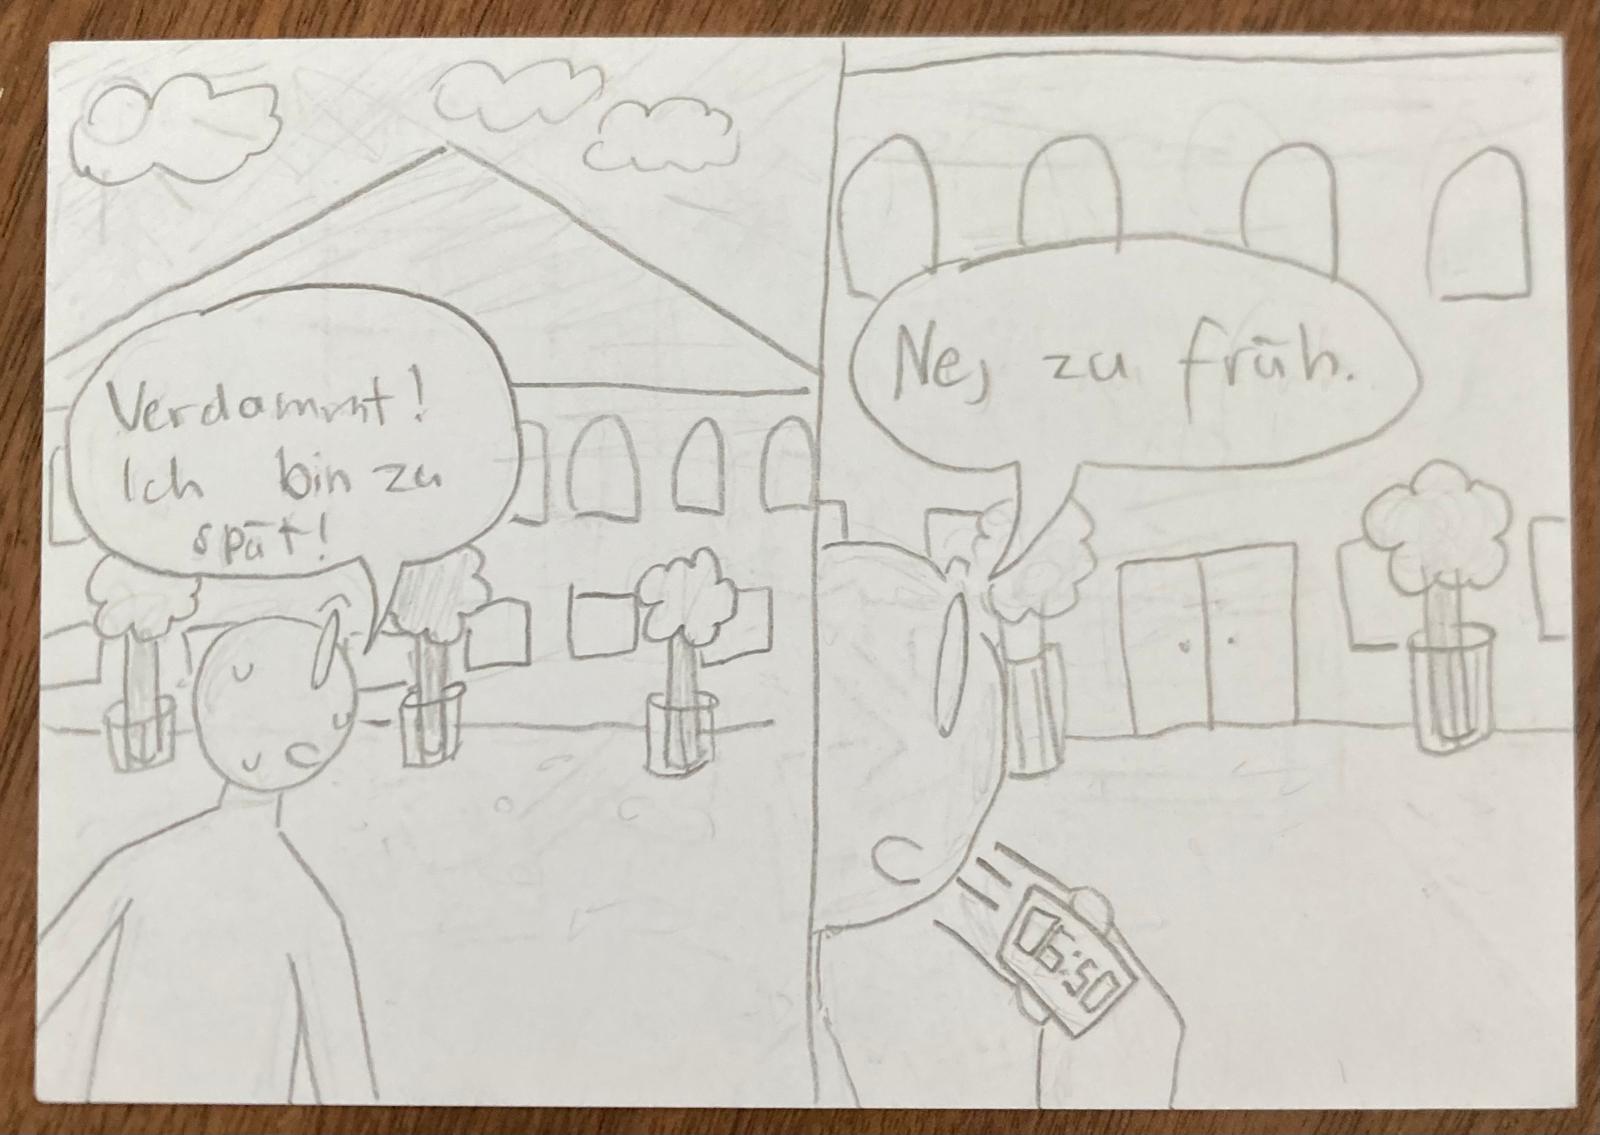 Verdammt!
Ich bin zu
spät!
Ne, zu früh.
06:50